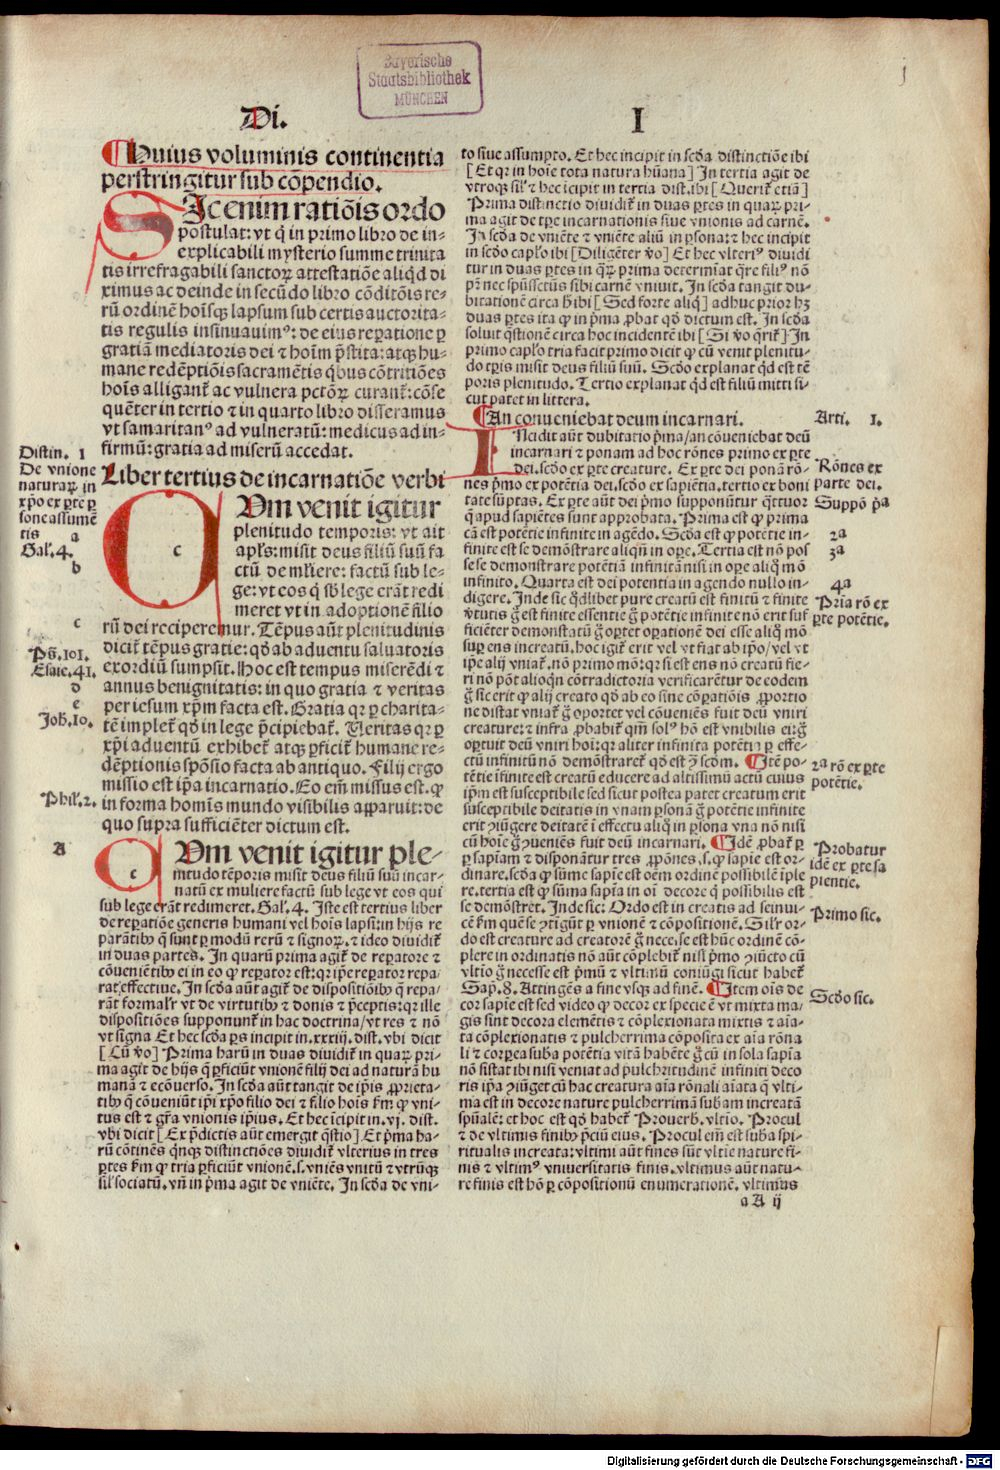 Bayerische
Staatsbibliothek
MÜNCHEN
Di.
I
Huius voluminis continentia
perstringitur sub cōpendio.
SIc enim ratiōis ordo
postulat: vt q̄ in primo libro de in-
explicabili mysterio summe trinita
tis irrefragabili sanctoꝝ attestatiōe aliq̇d di
ximus ac deinde in secūdo libro cōditōis re-
rū ordinē hoīsqꝫ lapsum sub certis auctorita-
tis regulis insinuauimꝰ: de eius reꝑatione ꝑ
gratiā mediatoris dei ⁊ hoīm p̄stita: atqꝫ hu-
mane redēptiōis sacramētis q̇bus cōtritiōes
hoīs alligant᷑ ac vulnera pctōꝝ curant᷑: cōse
quēter in tertio ⁊ in quarto libro disseramus
vt samaritanꝰ ad vulneratū: medicus ad in-
firmū: gratia ad miserū accedat.
Liber tertius de incarnatiōe verbi
Distin. I
De vnione
naturaꝝ in
xp̄o ex ꝑte ꝑ
sone assumē
tis
a
Gal'. 4.
b
c
Ps̄. 101.
Esaie. 41.
d
e
Joh̄. 10.
Phil'. 2.
c
QVm venit igitur
plenitudo temporis: vt ait
apl's: misit deus filiū suū fa
ctū de ml'iere: factū sub le-
ge: vt eos q̇ sb̄ lege erāt redi
meret vt in adoptionē filio
rū dei reciperemur. Tēpus aūt plenitudinis
dicit᷑ tēpus gratie: qd̄ ab aduentu saluatoris
exordiū sumpsit. Hoc est tempus miserēdi ⁊
annus benignitatis: in quo gratia ⁊ veritas
per iesum xp̄m facta est. Gratia qꝛ ꝑ charita-
tē implet᷑ qd̄ in lege p̄cipiebat᷑. Veritas qꝛ ꝑ
xp̄i aduentū exhibet᷑ atqꝫ ꝑficit᷑ humane re-
dēptionis spōsio facta ab antiquo. Filij ergo
missio est ip̄a incarnatio. Eo em̄ missus est. ꝙ
in forma homīs mundo visibilis apparuit: de
quo supra sufficiēter dictum est.
A
c
QVm venit igitur ple-
nitudo tēporis misit deus filiū suū incar-
natū ex muliere factū sub lege vt eos qui
sub lege erāt redimeret. Gal'. 4. Iste est tertius liber
de reꝑatiōe generis humani vel hoīs lapsi: in hijs re
parātibꝰ q̄ sunt ꝑ modū rerū ⁊ signoꝝ. ⁊ ideo diuidit᷑
in duas partes. In quarū prima agit᷑ de reꝑatore ⁊
cōueniētibꝰ ei in eo ꝙ reꝑator est: qꝛ ip̄e reꝑator repa
rat effectiue. In scd̄a aūt agit᷑ de dispositiōibꝰ q̄ repa-
rāt formal'r vt de virtutibꝰ ⁊ donis ⁊ p̄ceptis: qꝛ ille
dispositiōes supponunt᷑ in hac doctrina/ vt res ⁊ nō
vt signa Et hec scd̄a ꝑs incipit in. xxxiij. dist. vbi dicit
[Cū ṽo] Prima harū in duas diuidit᷑ in quaꝝ pri-
ma agit de hijs q̄ ꝑficiūt vnionē filij dei ad naturā hu
manā ⁊ ecōuerso. In scd̄a aūt tangit de ip̄is ꝓprieta-
tibꝰ q̄ cōueniūt ip̄i xp̄o filio dei ⁊ filio hoīs fm̄ ꝙ vni-
tus est ⁊ gr̄a vnionis ip̄ius. Et hec īcipit in. vj. dist.
vbi dicit [Ex p̄dictis aūt emergit q̄stio] Et p̄ma ha-
rū cōtinēs q̇nqꝫ distinctiōes diuidit᷑ vlterius in tres
ꝑtes fm̄ ꝙ tria ꝑficiūt vnionē. s. vniēs vnitū ⁊ vtrūqꝫ
sil' sociatū. vn̄ in p̄ma agit de vniēte. In scd̄a de vni-
to siue assumpto. Et hec incipit in scd̄a distinctiōe ibi
[Et qꝛ in hoīe tota natura hūana] In tertia agit de
vtroqꝫ sil' ⁊ hec īcipit in tertia dist. ibi [Querit᷑ etiā]
Prima distinctio diuidit᷑ in duas ꝑtes in quaꝝ pri-
ma agit de tꝑe incarnationis siue vnionis ad carnē.
In scd̄a de vniēte ⁊ vniēte aliū in ꝑsona: ⁊ hec incipit
in scd̄o capl'o ibi [Diligēter ṽo] Et hec vlteriꝰ diuidi
tur in duas ꝑtes in q̄ꝝ prima determīat q̄re filiꝰ nō
pr̄ nec spūssctūs sibi carnē vniuit. In scd̄a tangit du-
bitationē circa h̄ ibi [Sed forte aliq̇] adhuc prior hꝫ
duas ꝑtes ita ꝙ in p̄ma ꝓbat qd̄ dictum est. In scd̄a
soluit q̄stionē circa hoc incidentē ibi [Si ṽo q̄rit᷑] In
primo capl'o tria facit primo dicit ꝙ cū venit plenitu-
do tꝑis misit deus filiū suū. Scd̄o explanat q̇d est tē
poris plenitudo. Tertio explanat q̇d est filiū mitti si-
cut patet in littera.
An conueniebat deum incarnari.
Arti. I.
INcidit aūt dubitatio p̄ma/an cōueniebat deū
incarnari ⁊ ponam ad hoc rōnes primo ex ꝑte
dei. scd̄o ex ꝑte creature. Ex ꝑte dei ponā rō-
nes p̄mo ex potētia dei. scd̄o ex sapiētia. tertio ex boni
tate sūptas. Ex ꝑte aūt dei p̄mo supponūtur q̄ttuor
q̄ apud sapiētes sunt approbata. Prima est ꝙ prima
cā est potētie infinite in agēdo. Scd̄a est ꝙ potētie in-
finite est se demōstrare aliqn̄ in oꝑe. Tertia est nō pos
se se demonstrare potētiā infinitā nisi in oꝑe aliq̊ mō
infinito. Quarta est dei potentia in agendo nullo in-
digere. Inde sic q̇dlibet pure creatū est finitū ⁊ finite
v̓tutis g̊ est finite essentie g̊ potētie infinite nō erit suf
ficiēter demonstratū g̊ oꝑtet oꝑationē dei esse aliq̊ mō
suꝑ ens increatū. hoc igit᷑ erit vel vt fiat ab ip̄o/ vel vt
ip̄e alij vniat᷑. nō primo mō: qꝛ si est ens nō creatū fie-
ri nō pōt alioq̇n cōtradictoria verificarētur de eodem
g̊ sic erit ꝙ alij creato qd̄ ab eo sine cōꝑatiōis ꝓportio
ne distat vniat᷑ g̊ oportet vel cōueniēs fuit deū vniri
creature: ⁊ infra ꝓbabit᷑ qm̄ solꝰ hō est vnibilis ei: g̊
oportuit deū vniri hoī: qꝛ aliter infinita potētia ꝑ effe-
ctū infinitū nō demōstraret᷑ qd̄ est ꝯ̄ scd̄m. Itē po-
tētie īfinite est creatū educere ad altissimū actū cuius
ip̄m est susceptibile sed sicut postea patet creatum erit
susceptibile deitatis in vnam ꝑsonā g̊ potētie infinite
erit ꝯiūgere deitatē ī effectu aliq̊ in ꝑsona vna nō nisi
cū hoīe g̊ ꝯueniēs fuit deū incarnari. Idē ꝓbat᷑ ꝑ
ꝑ sapīam ⁊ disponātur tres ꝓpōnes. s. ꝙ sapīe est or-
dinare. scd̄a ꝙ sūme sapīe est oēm ordinē possibilē īple
re. tertia est ꝙ sūma sapīa in oī decore q̇ possibilis est
se demōstret. Inde sic: Ordo est in creatis ad seinui-
cē fm̄ quē se ꝯtigūt ꝑ vnionē ⁊ cōpositionē. Sil'r or-
do est creature ad creatorē g̊ necesse est hūc ordinē cō-
plere in ordinatis nō aūt cōplebit᷑ nisi p̄mo ꝯiūcto cū
vltīo g̊ necesse est p̄mū ⁊ vltimū coniūgi sicut habet᷑
Sap̄. 8. Attingēs a fine vsqꝫ ad finē. Item oīs de-
cor sapīe est sed video ꝙ decor ex specie ē vt mixta ma-
gis sint decora elemētis ⁊ cōplexionata mixtis ⁊ aīa-
ta cōplexionatis ⁊ pulcherrima cōposita ex aīa rōna
li ⁊ corꝑea suba potētia vitā habēte g̊ cū in sola sapīa
nō sistat ibi nisi veniat ad pulchritudinē infiniti deco
ris ip̄a ꝯiūget cū hac creatura aīa rōnali aīata q̄ vlti-
ma est in decore nature pulcherrimā subam increatā
spūalē: et hoc est qd̄ habet᷑ Prouerb. vltīo. Procul
⁊ de vltimis finibꝰ p̄ciū eius. Procul em̄ est suba spi-
ritualis increata: vltimi aūt fines sūt vltīe nature fi-
nis ⁊ vltimꝰ vniuersitatis finis. vltimus aūt natu-
re finis est hō ꝑ cōpositionū enumerationē. vltimus
Rōnes ex
parte dei.
Suppō p̄ᵃ
2ᵃ
3ᵃ
4ᵃ
Pria rō ex
ꝑte potētie.
2ᵃ rō ex ꝑte
potētie.
Probatur
idē ex ꝑte sa
pientie.
Primo sic.
Scd̄o sic.
a A ij
Digitalisierung gefördert durch die Deutsche Forschungsgemeinschaft -
DFG